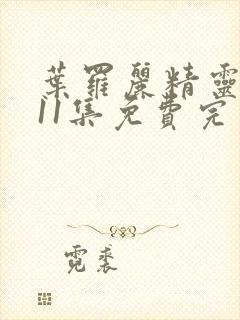 葉羅麗精靈
11集免費完
霓裘